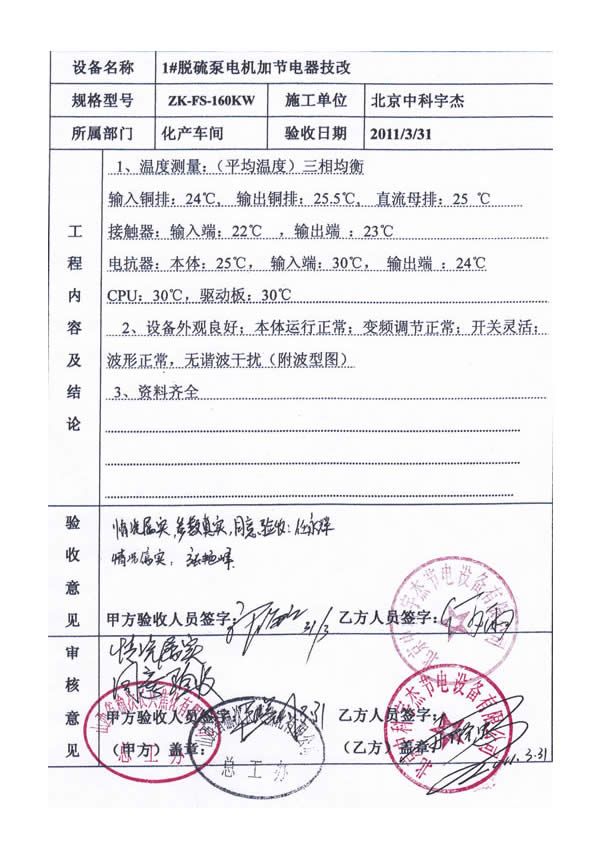 设备名称 1#脱硫泵电机加节电器技改
规格型号 ZK-FS-160KW 施工单位 北京中科宇杰
所属部门 化产车间 验收日期 2011/3/31
工程内容及结论
1、温度测量：（平均温度）三相均衡
输入铜排：24℃, 输出铜排：25.5℃, 直流母排：25 ℃
接触器：输入端：22℃ ，输出端 ：23℃
电抗器：本体：25℃， 输入端：30℃， 输出端 ：24℃
CPU：30℃，驱动板：30℃
2、设备外观良好；本体运行正常；变频调节正常；开关灵活；
波形正常，无谐波干扰（附波型图）
3、资料齐全
验收意见
情况属实,参数真实,同意验收:
情况属实,
甲方验收人员签字： 31/3 乙方人员签字：
北京中科宇杰节电设备有限公司
审核意见
情况属实
同意验收
甲方验收人员签字： 3.31 乙方人员签字：
（甲方）盖章： （乙方）盖章 2011.3.31
总工办
总工办
北京中科宇杰节电设备有限公司